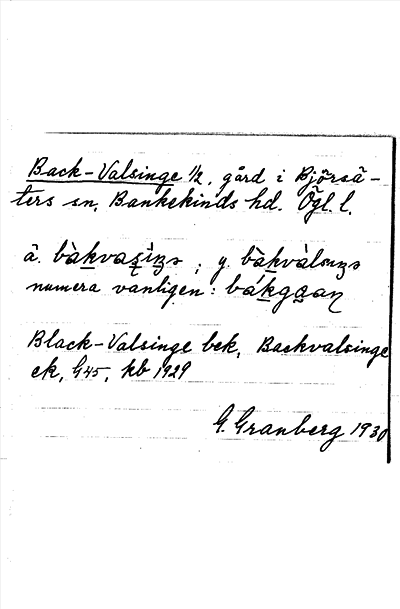 Back-Valsinge 1/2, gård i Bjärsä-
ters sn, Bankekinds hd. Ögl. l.
ä. bàk̲va
; y. bàk̲vàl
numera vanligen: bák̲g
Black-Valsinge bek, Backvalsinge
ek, G45, kb 1929
G. Granberg 1930